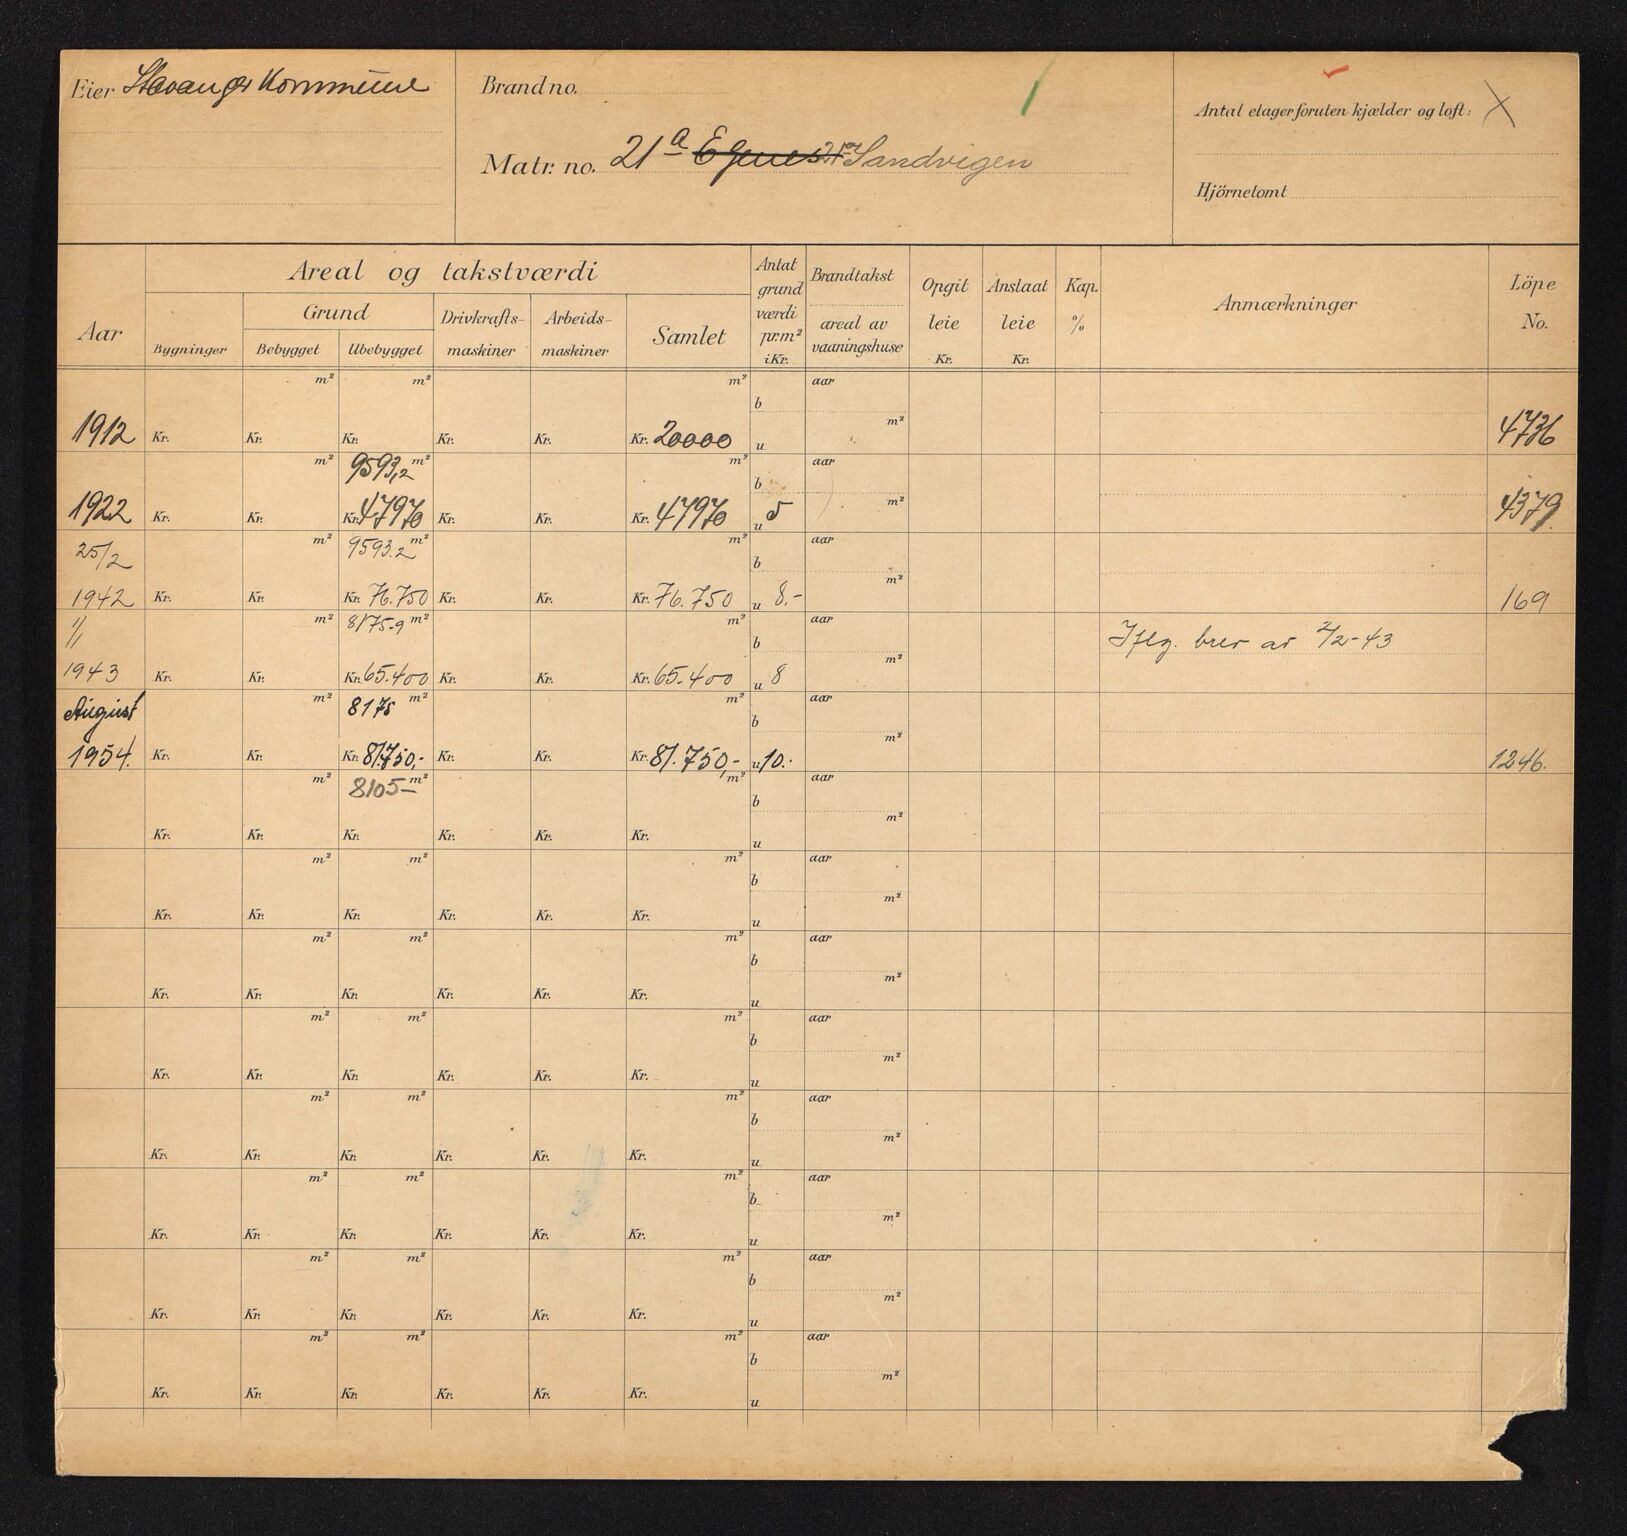 Eier Stavanger Kommune
Brand no.
Matr. no. 21a Egenes 21a Sandvigen
Antal etager foruten kjælder og loft: X
Hjörnetomt
Aar
Areal og takstværdi
Bygninger
Grund
Bebygget
Ubebygget
Drivkrafts-
maskiner
Arbeids-
maskiner
Samlet
Antat
grund
værdi
pr.m²
i Kr.
Brandtakst
areal av
vaaningshuse
Opgit
leie
Kr.
Anslaat
leie
Kr.
Kap.
%
Anmærkninger
Löpe
No.
m² m² m² aar
b
m²
1912 Kr. Kr. Kr. Kr. Kr. Kr. 20000 u 4736
m² 9593,2 m² m² aar
b
m²
1922 Kr. Kr. Kr. 47970 Kr. Kr. Kr. 47970 u 5 4379
25/2 m² 9593.2 m² m² aar
b
m²
1942 Kr. Kr. Kr. 76.750 Kr. Kr. Kr. 76.750 u 8.- 169
1/1 m² 8175.9 m² m² aar
b Iflg. brev av 2/2-43
m²
1943 Kr. Kr. Kr. 65.400 Kr. Kr. Kr. 65.400 u 8
August m² 8175 m² m² aar
b
m²
1954. Kr. Kr. Kr. 81.750,- Kr. Kr. Kr. 81.750,- u 10.- 1246.
m² 8105- m² m² aar
b
m²
Kr. Kr. Kr. Kr. Kr. Kr. u
m² m² m² aar
b
m²
Kr. Kr. Kr. Kr. Kr. Kr. u
m² m² m² aar
b
m²
Kr. Kr. Kr. Kr. Kr. Kr. u
m² m² m² aar
b
m²
Kr. Kr. Kr. Kr. Kr. Kr. u
m² m² m² aar
b
m²
Kr. Kr. Kr. Kr. Kr. Kr. u
m² m² m² aar
b
m²
Kr. Kr. Kr. Kr. Kr. Kr. u
m² m² m² aar
b
m²
Kr. Kr. Kr. Kr. Kr. Kr. u
m² m² m² aar
b
m²
Kr. Kr. Kr. Kr. Kr. Kr. u